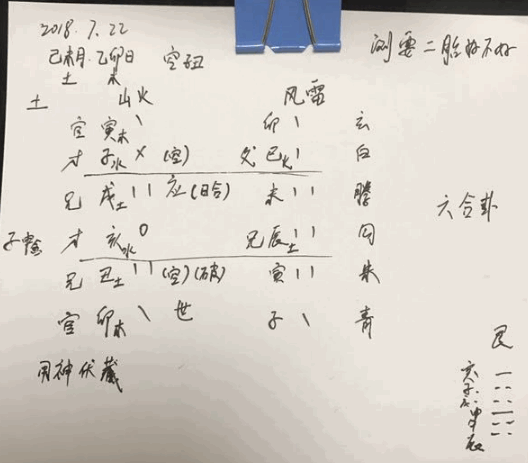 2018.7.22
己未月.乙卯日 空丑
土 木
测要二胎好不好
土 山火 风雷
官 寅木 、 卯 、 玄
才 子水 × (空) 父 巳火 、 白
兄 戌土 、、 应 (日合) 未 、、 腾
子申金 才 亥水 O 兄 辰土 、、 勾
兄 丑土 、、 (空)(破) 寅 、、 朱
官 卯木 、 世 子 、 青
六合卦
用神伏藏
艮